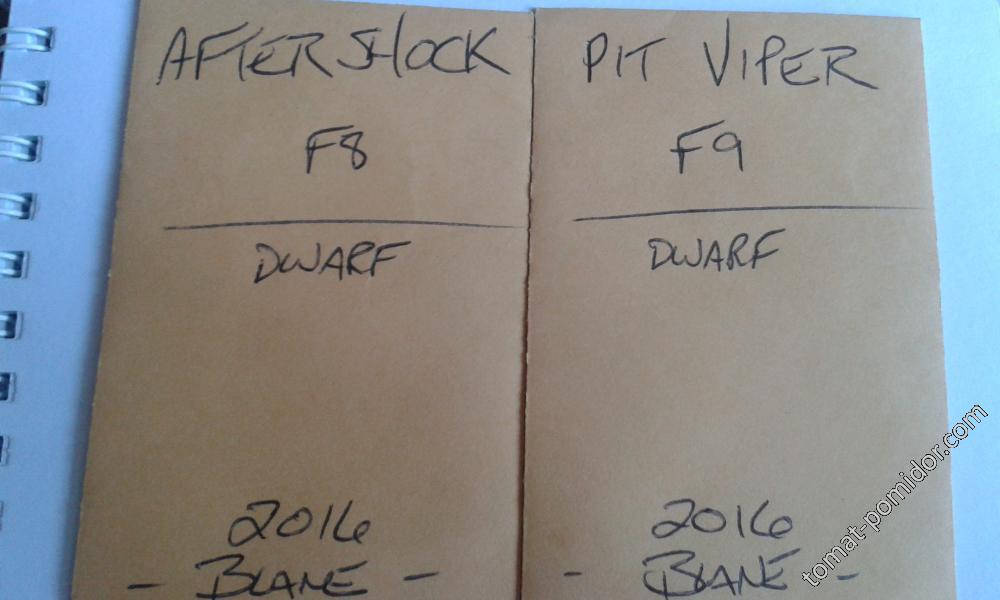 AFTERSHOCK
F8
DWARF
2016
- BLANE -
PIT VIPER
F9
DWARF
2016
- BLANE -
tomat-pomidor.com